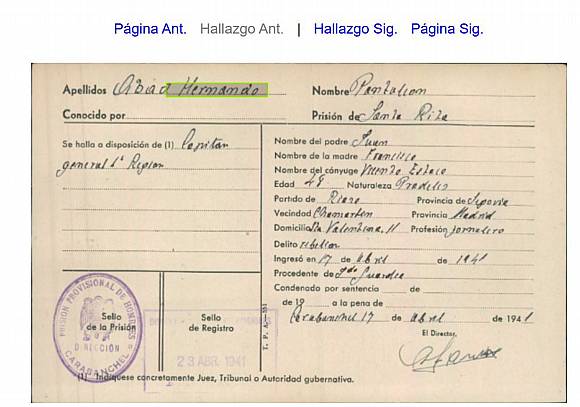 Página Ant. Hallazgo Ant. | Hallazgo Sig. Página Sig.
Apellidos Abad Hernando
Nombre Pantaleon
Conocido por
Prisión de Santa Rita
Se halla a disposición de (1) Capitan
general 1ª Region
Nombre del padre Juan
Nombre de la madre Francisca
Nombre del cónyuge Vicenta
Edad 48 Naturaleza
Partido de Riaza Provincia de Segovia
Vecindad Chamartin Provincia Madrid
Domicilio Valentina, 11 Profesión jornalero
Delito rebelion
Ingresó en 17 de Abril de 1941
Procedente de Guardia
Condenado por sentencia de de
de 19 a la pena de
Carabanchel 17 de Abril de 1941
El Director,
PRISION PROVISIONAL DE HOMBRES
DIRECCIÓN
CARABANCHEL
Sello
de la Prisión
Sello
de Registro
23 ABR. 1941
T. P. A.-151
(1) Indíquese concretamente Juez, Tribunal o Autoridad gubernativa.